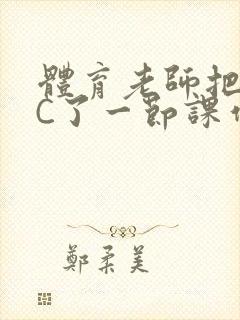 體育老師把
C了一節課
鄭柔美